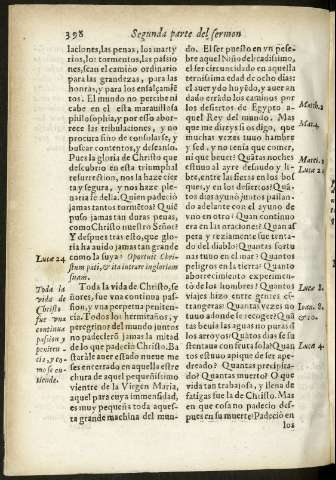 398 Segunda parte del sermon
laciones, las penas, los marty
rios, los tormentos, las passio
nes, sean el camino ordinario
para las grandezas, para las
honras, y para los ensalçamiẽ
tos. El mundo no percibe ni
cabe en el esta marauillosa
philosophia, y por esso abor
rece las tribulaciones, y no
procura sino de consolarse, y
buscar contentos, y descanso.
Pues la gloria de Christo que
descubrio en esta triumphal
resurrection, nos la haze cier
ta y segura, y nos haze ple-
naria fe della. Quien padeciò
jamas tantos tormẽtos? Quiẽ
puso jamas tan duras penas,
como Christo nuestro Señor?
Y despues tras esto, que glo-
ria ha auido jamas tan grande
como la suya? Oportuit Chri-
stum pati, & ita intrare in gloriam
suam.
Luc. 24
Toda la vida de Christo, se
ñores, fue vna continua pas-
sion, y vna perpetua peniten-
cia. Todos los hermitaños, y
peregrinos del mundo juntos
no padecierõ jamas la mitad
de lo que padeciò Christo. Ba
staràle auer estado nueue me
ses encerrado en aquella estre
chura de aquel pequeñissimo
vientre de la Virgen Maria,
aquel para cuya immensidad,
es muy pequeña toda aques-
ta grande machina del mun-
Toda la
vida de
Christo
fue vna
continua
passion y
peniten-
cia, y co
mo se en-
tiende.
do. El ser puesto en vn pese-
bre aquel Niño delicadissimo,
el ser circuncidado en aquella
ternissima edad de ocho dias:
el auer ydo huyẽdo, y auer an
dado errado los caminos por
los desiertos de Egypto a-
quel Rey del mundo. Mas
que me direys si os digo, que
muchas vezes tuuo hambre
y sed, y no tenia que comer,
ni que beuer? Quãtas noches
estuuo al ayre desnudo y li-
bre, entre las fieras en los bos
ques, y en los desiertos? Quã-
tos dias ayuno juntos passan-
do adelante con el ayuno de
vno en otro? Quan continuo
era en las oraciones? Quan as
pera y reziamente fue tenta-
do del diablo? Quantas fortu
nas tuuo en el mar? Quantos
peligros en la tierra? Quanto
aborrecimiento experimen-
tò de los hombres? Quantos
viajes hizo entre gentes es-
trangeras? Quantas vezes no
tuuo adonde se recoger? Quã
tas beuia las aguas no puras d
los arroyos? Quãtos dias se su
stentaua con fruta sola? Quan
tos estuuo apique de ser ape-
dreado? Quantas precipita-
do? Quantas muerto? O que
vida tan trabajosa, y llena de
fatigas fue la de Christo. Mas
en que cosa no padecio des-
pues en su muerte? Padeciò en
los
Matth. 2
Mat. 4.
Luce 8.
Luce 4.